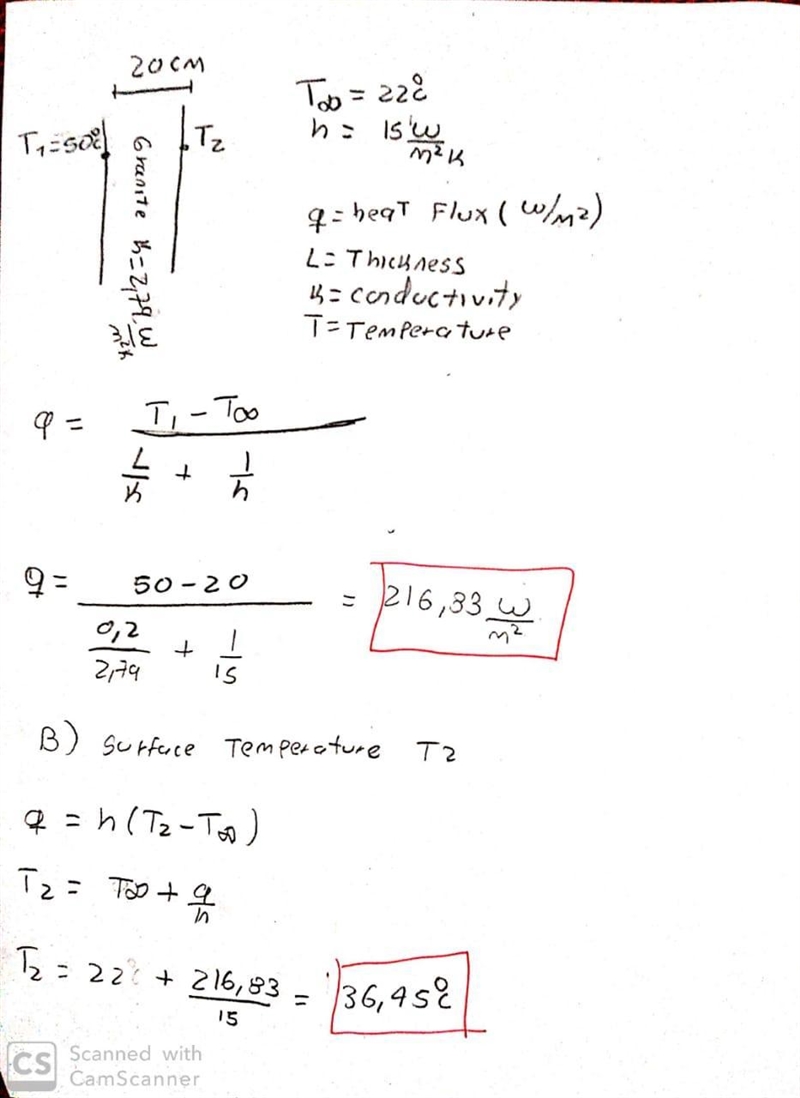 20 cm
T∞ = 22°C
T₁=50°C
T₂
h = 15 W/m²K
Granite K=2,79 W/m²K
q = heat Flux (W/m²)
L = Thickness
K = conductivity
T = Temperature
q = (T₁ - T∞) / (L/K + 1/h)
q = (50-20) / (0,2/2,79 + 1/15) = 216,83 W/m²
B) Surface Temperature T2
q = h(T₂ - T∞)
T₂ = T∞ + q/h
T₂ = 22°C + 216,83/15 = 36,45°C
CS Scanned with
CamScanner